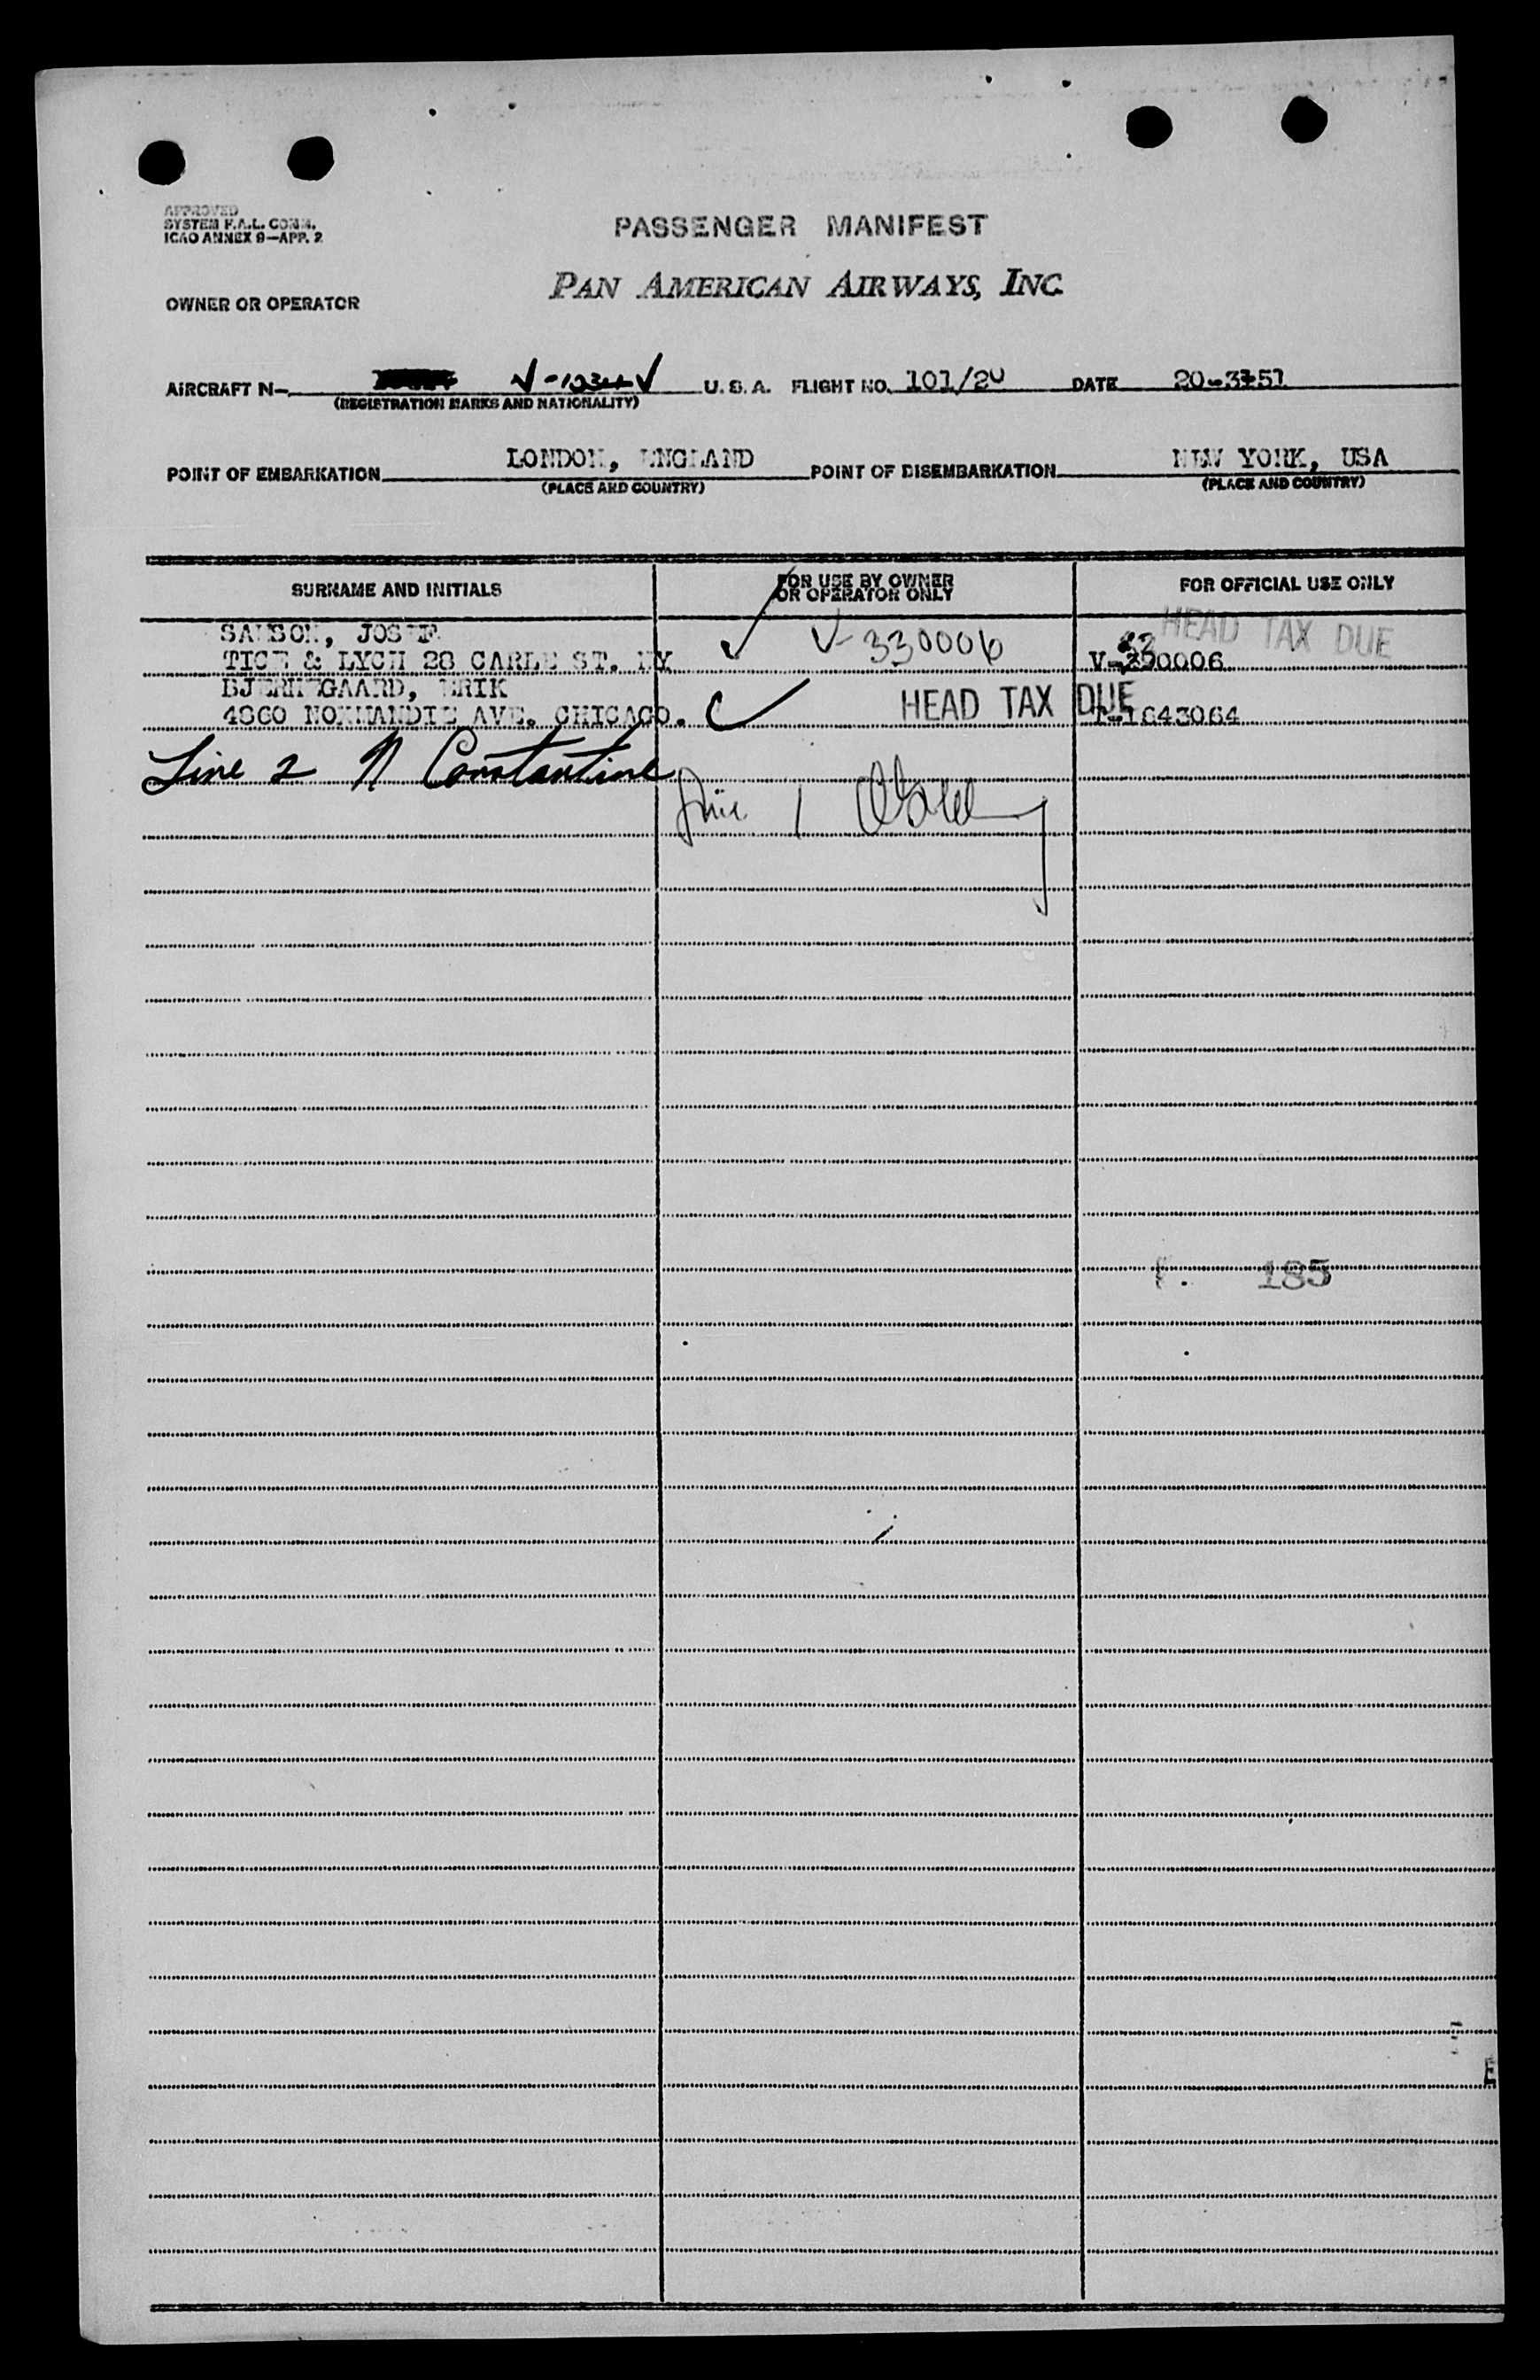 APPROVED
SYSTEM F.A.L. COMM.
ICAO ANNEX 9—APP. 2
PASSENGER MANIFEST
PAN AMERICAN AIRWAYS, INC.
OWNER OR OPERATOR
AIRCRAFT N- U.S.A. FLIGHT NO. 101/20 DATE 20-3-51
(REGISTRATION MARKS AND NATIONALITY)
POINT OF EMBARKATION LONDON, ENGLAND POINT OF DISEMBARKATION NEW YORK, USA
(PLACE AND COUNTRY) (PLACE AND COUNTRY)
SURNAME AND INITIALS FOR USE BY OWNER OR OPERATOR ONLY FOR OFFICIAL USE ONLY
HEAD TAX DUE
JOSEF V-330006
TICE & LYCH 28 CARLE ST. NY V-390006
BJERREGAARD, ERIK
4860 NORMANDIE AVE. CHICAGO. HEAD TAX DUE 1643064
Line 2 N Constantine
Line 1
185
E